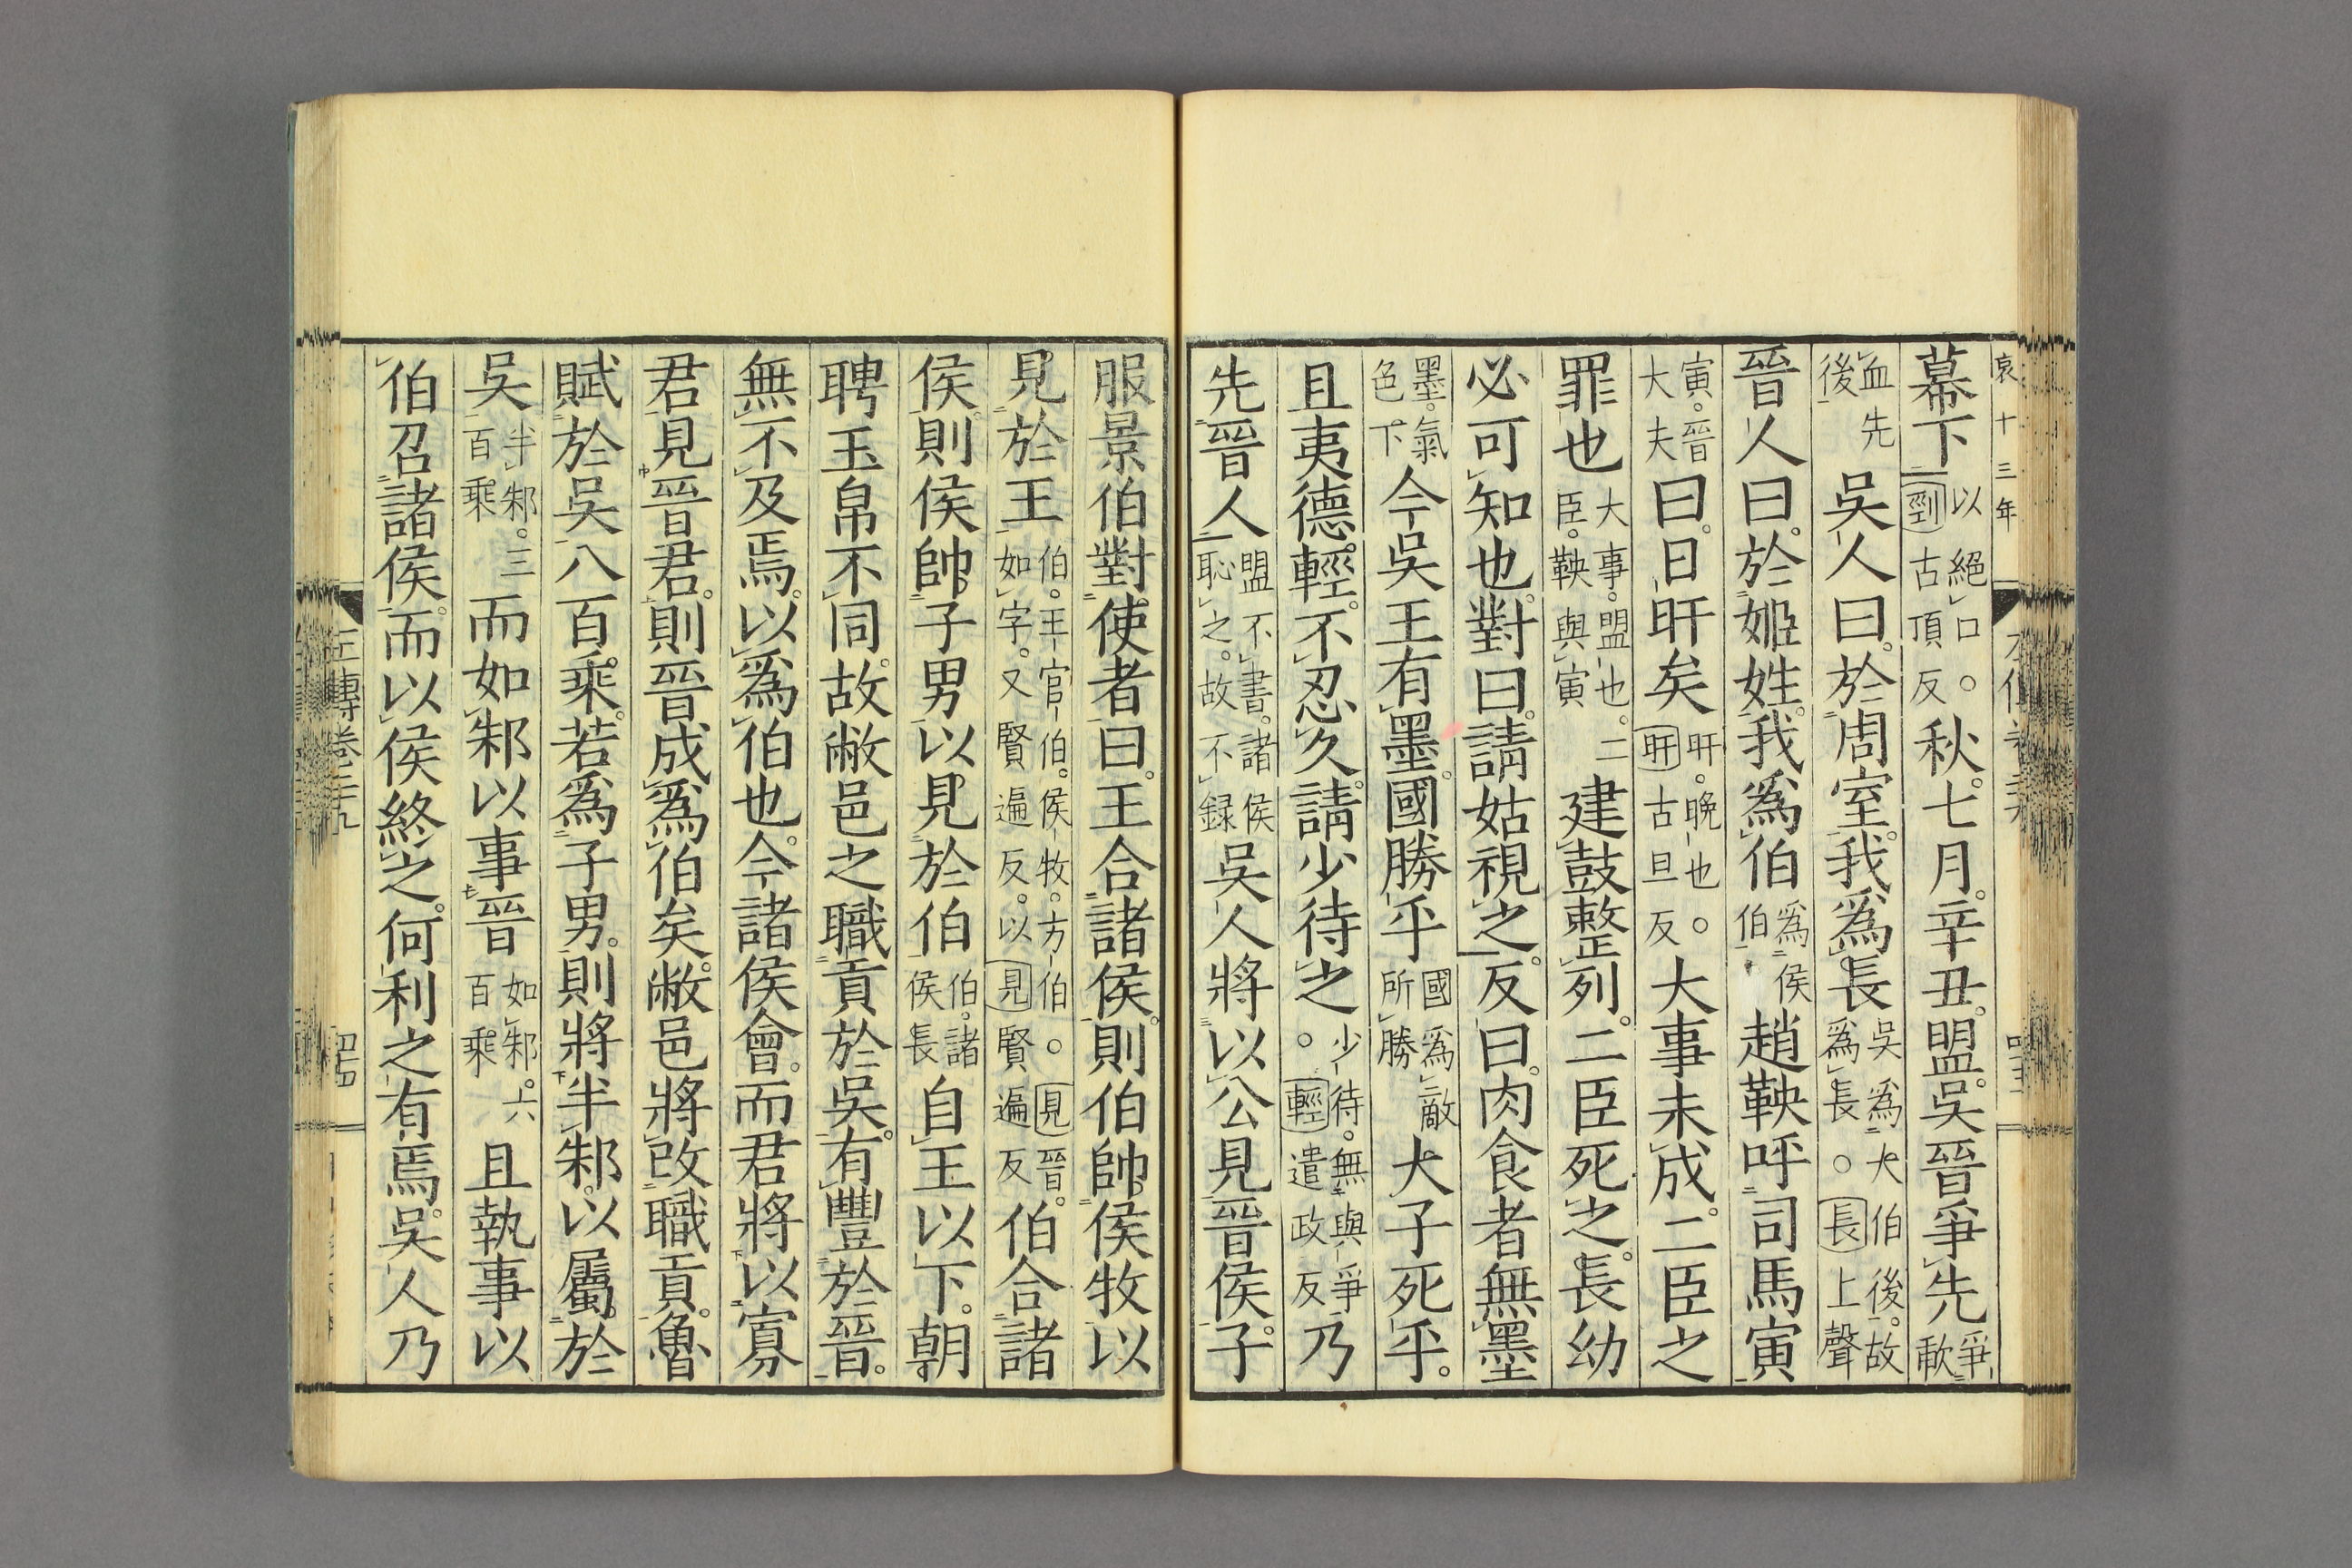 哀十三年
幕下以絕口。剄古頂反秋七月。辛丑。盟。吳晉爭先爭歃
血先後吳人曰。於周室。我爲長吳爲大伯後。故爲長。長上聲
晉人曰。於姬姓。我爲伯爲侯伯趙鞅呼司馬寅
寅。晉大夫曰。日旰矣旰。晚也。旰古旦反大事未成。二臣之
罪也大事。盟也。二臣。鞅與寅建鼓整列。二臣死之。長幼
必可知也。對曰。請姑視之。反曰。肉食者無墨
墨。氣色下今吳王有墨。國勝乎國爲敵所勝大子死乎。
且夷德輕。不忍久。請少待之。少待。無與爭。輕遣政反乃
先晉人盟不書。諸侯恥之。故不録吳人將以公見晉侯。子
服景伯對使者曰。王合諸侯。則伯帥侯牧以
見於王伯。王官伯。侯牧。方伯。見賢遍反如字。又賢遍反。以見晉。伯合諸
侯。則侯帥子男以見於伯伯。諸侯長自王以下。朝
聘玉帛不同。故敝邑之職貢於吳。有豐於晉。
無不及焉。以爲伯也。今諸侯會。而君將以寡
君見晉君。則晉成爲伯矣。敝邑將改職貢。魯
賦於吳八百乘。若爲子男。則將半邾。以屬於
吳半邾。三百乘而如邾以事晉如邾。六百乘且執事以
伯召諸侯。而以侯終之。何利之有焉。吳人乃